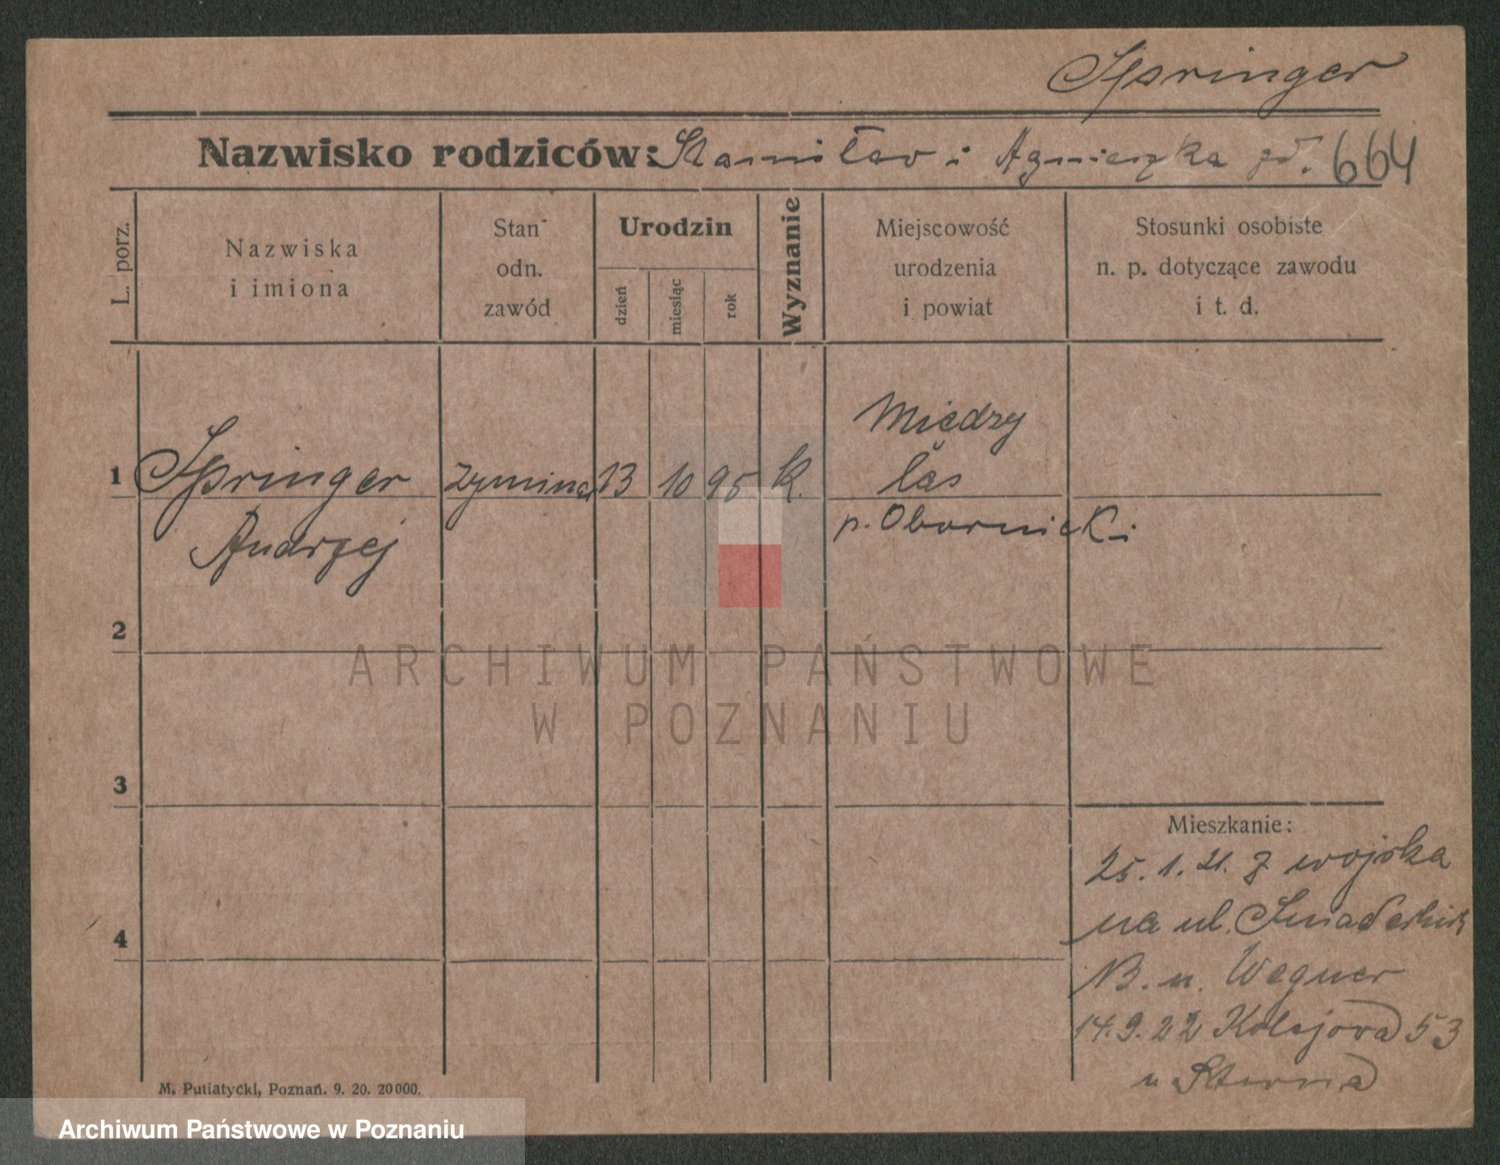 Springer
Nazwisko rodziców: Stanisław i Agnieszka 664
L. porz.
Nazwiska
i imiona
Stan
odn.
zawód
Urodzin
dzień
miesiąc
rok
Wyznanie
Miejscowość
urodzenia
i powiat
Stosunki osobiste
n. p. dotyczące zawodu
i t. d.
1 Springer 13 10 95 k.
Andrzej
Między
las
p. Obornicki
2
3
4
ARCHIWUM PAŃSTWOWE
W POZNANIU
Mieszkanie:
25.1.21. z wojska
na ul.
u. Wegner
14.9.22 Kolejowa 53
u
M. Putiatycki, Poznań. 9. 20. 20000.
Archiwum Państwowe w Poznaniu